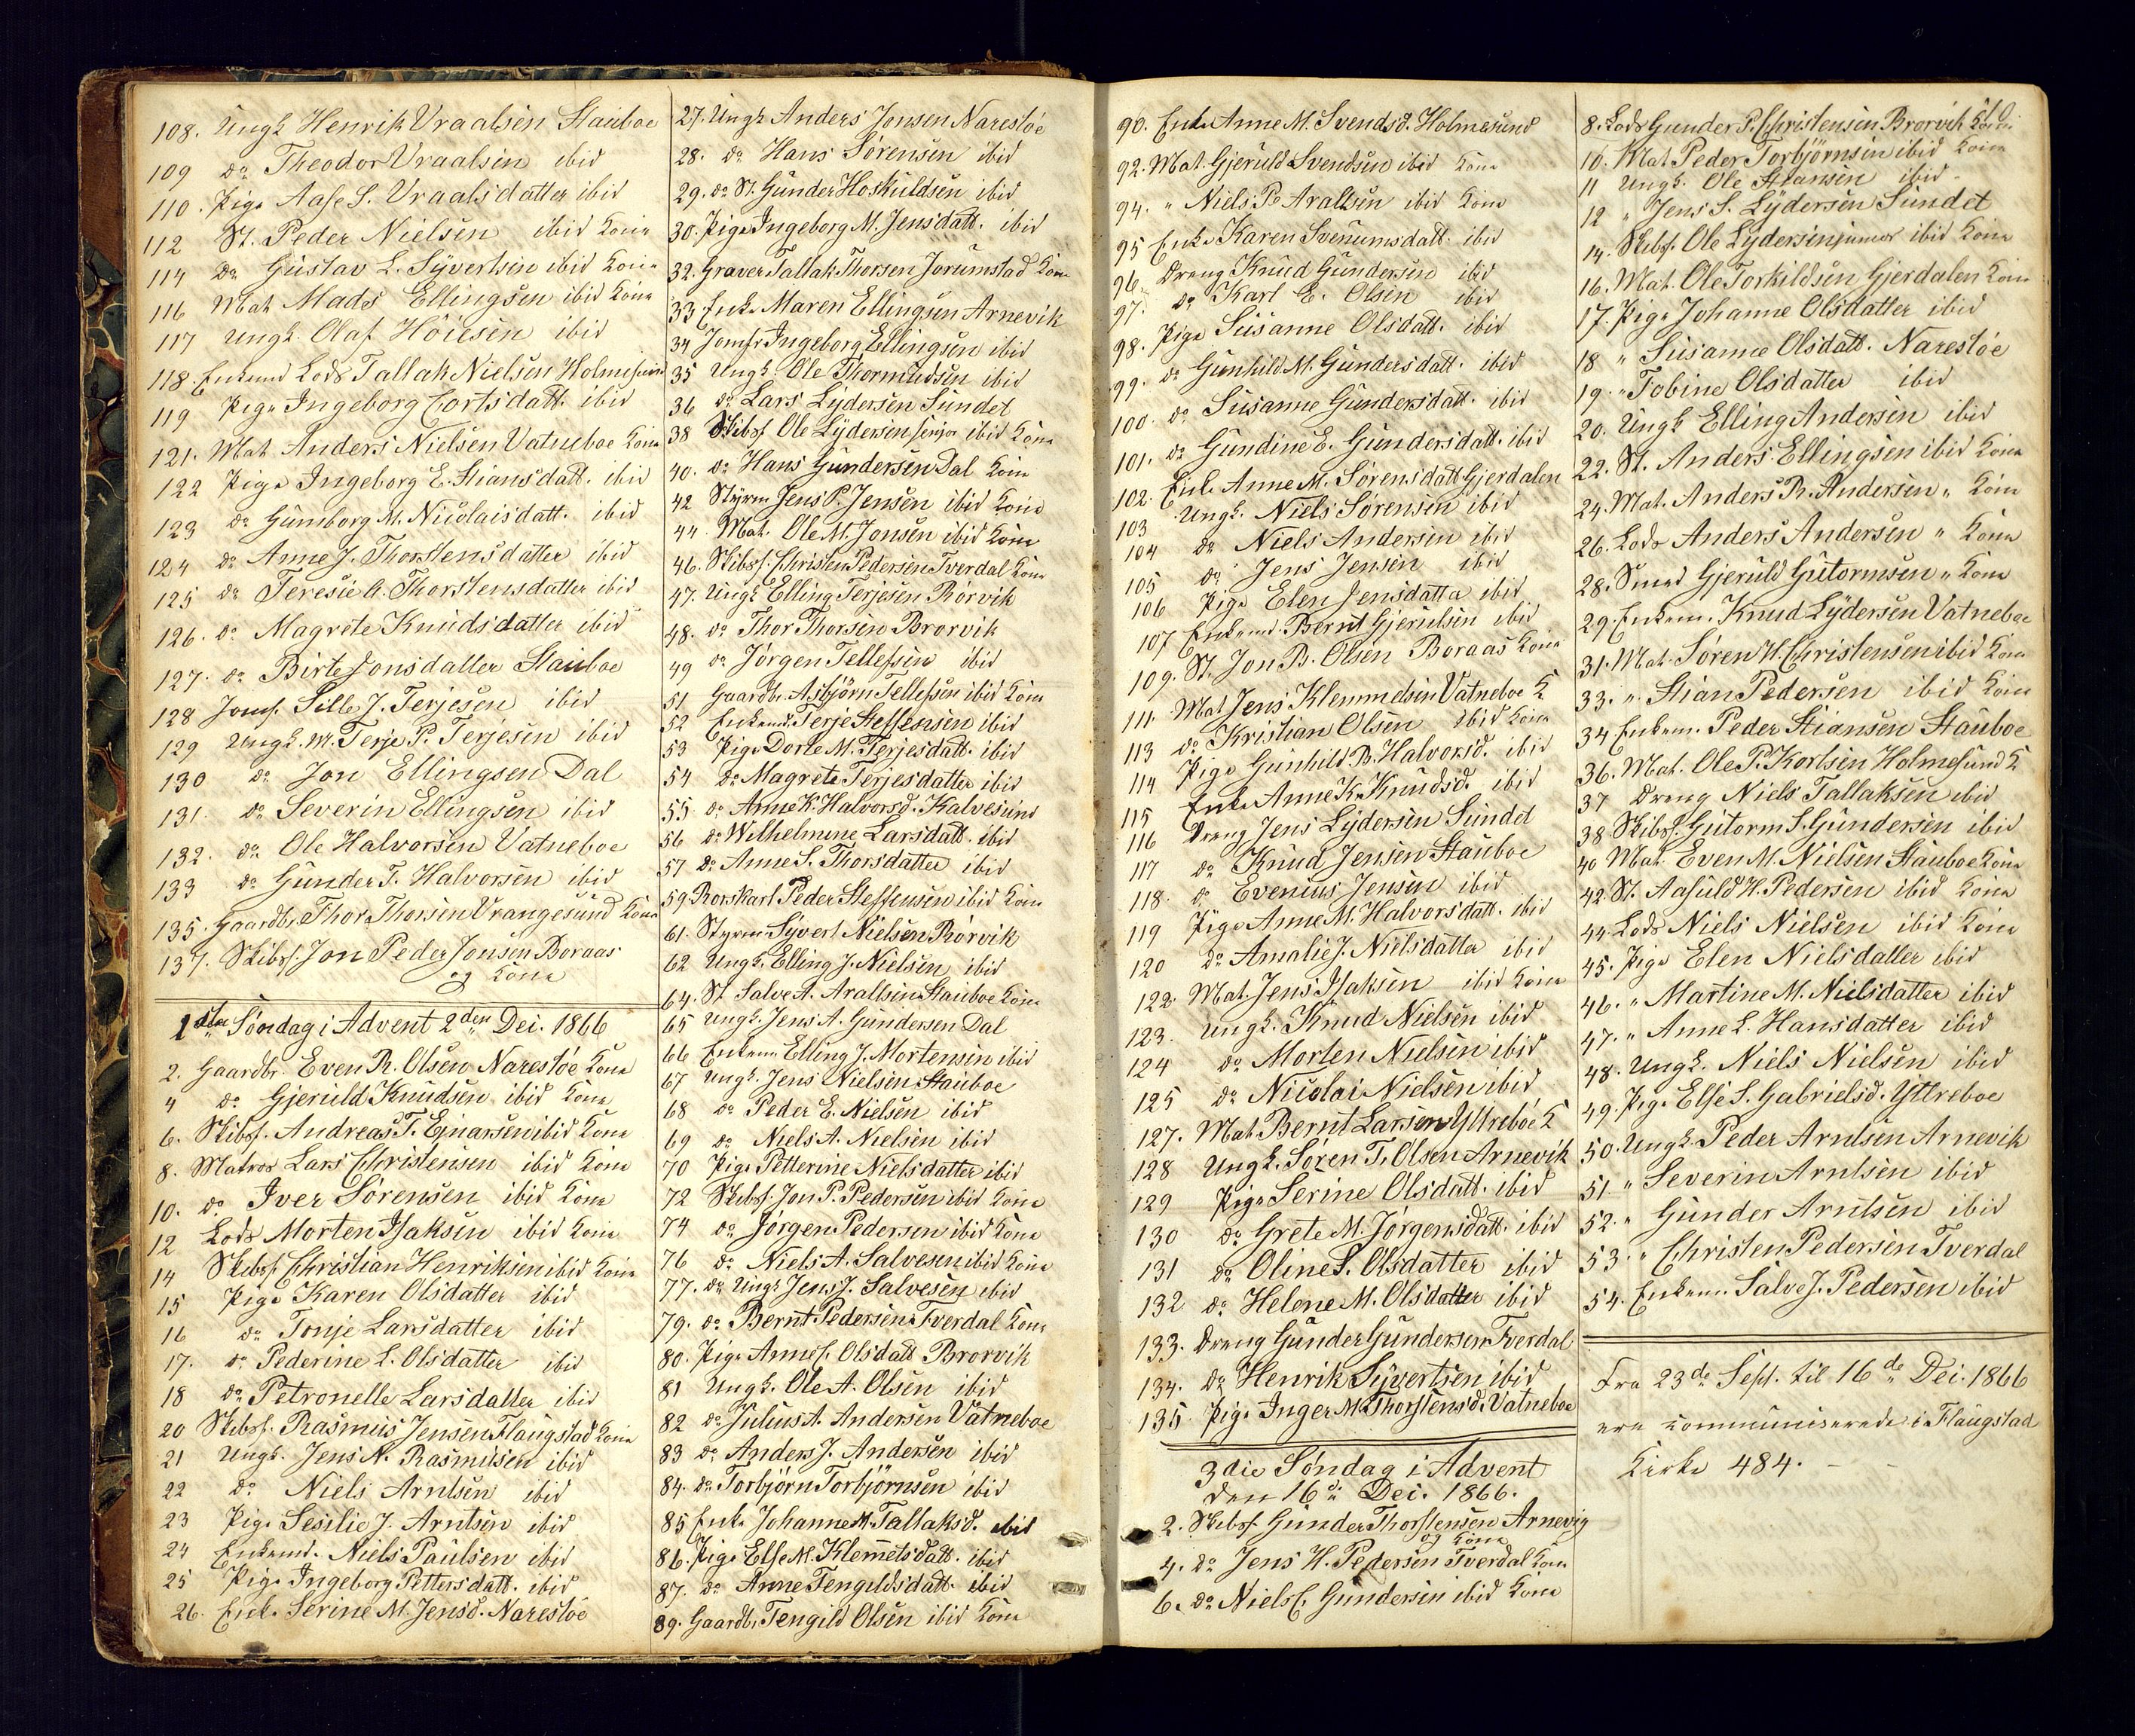 108. Ungk Henrik Vraalsen Stauboe
109 do Theodor Vraalsen ibid
110. Pige Aase S. Vraalsdatter ibid
112 St. Peder Nielsen ibid Kone
114 do Gustav L. Syvertsen ibid Kone
116 Mat Mads Ellingsen ibid Kone
117 Ungk. Olaf Höiesen ibid
118. Enkemd Lods Tallak Nielsen Holmesund
119 Pige Ingeborg Cortsdatt. ibid
121. Mat. Anders Nielsen Vatneboe Kone
122 Pige Ingeborg E. Stiansdatt. ibid
123 do Gunborg M. Nicolaisdatt. ibid
124 do Anne J. Thorstensdatter ibid
125 do Teresie A. Thorstensdatter ibid
126. do Magrete Knudsdatter ibid
127. do Birte Jonsdatter Stauboe
128 Jomf. Sille J. Terjesen ibid
129 Ungk. M. Terje P. Terjesen ibid
130 do Jon Ellingsen Dal
131. do Severin Ellingsen ibid
132. do Ole Halvorsen Vatneboe
133 do Gunder T. Halvorsen ibid
135. Gaardbr. Thor Thorsen Vrangesund Kone
137. Skibsf. Jon Peder Jonsen Boraas
og Kone
1ste Søndag i Advent 2den Dei. 1866
2. Gaardbr. Even R. Olsen Narestöe Kone
4 do Gjeruld Knudsen ibid Kone
6. Skibsf. Andreas T. Ejnarsen ibid Kone
8. Matros Lars Christensen ibid Kone
10. do Iver Sörensen ibid Kone
12 Lods Morten Isaksen ibid Kone
14 Skibsf. Christian Henriksen ibid Kone
15 Pige Karen Olsdatter ibid
16 do Tonje Larsdatter ibid
17. do Pederine L. Olsdatter ibid
18 do Petronelle Larsdatter ibid
20 Skibsf. Rasmus Jensen Flaugstad Kone
21 Ungk. Jens N. Rasmusen ibid
22 do Niels Arntsen ibid
23 Pige Sesilie J. Arntsen ibid
24 Enkemd. Niels Paulsen ibid
25 Pige Ingeborg Pettersdatt. ibid
26. Enke Serine M. Jensd. Narestöe
27. Ungk Anders Jonsen Narestöe
28. do Hans Sörensen ibid
29. do St. Gunder Hoskuldsen ibid
30. Pige Ingeborg M. Jensdatt. ibid
32. Graver Tallak Thorsen Jorumstad Kone
33 Enke Maren Ellingsen Arnevik
34 Jomfr Ingeborg Ellingsen ibid
35 Ungk. Ole Thormudsen ibid
36 do Lars Lydersen Sundet
38 Skibsf. Ole Lydersen senjor ibid Kone
40. do Hans Gundersen Dal Kone
42 Styrm Jens P. Jensen ibid Kone
44. Mat. Ole M. Jonsen ibid Kone
46. Skibsf. Christen Pedersen Tverdal Kone
47. Ungk Elling Terjesen Rörvik
48. do Thor Thorsen Brorvik
49 do Jörgen Tellefsen ibid
51 Gaardbr. Asbjörn Tellefsen ibid Kone
52 Enkemd Terje Steffensen ibid
53 Pige Dorte M. Terjesdatt. ibid
54 do Magrete Terjesdatter ibid
55 do Anne K. Halvorsd. Kalvesund
56 do Wilhelmine Larsdatt. ibid
57 do Anne S. Thorsdatter ibid
59. Rorskarl Peder Steffensen ibid Kone
61. Styrm Syvert Nielsen Rörvik
62 Ungk. Elling J. Nielsen ibid
64. St Salve A. Aralsen Stauboe Kone
65 Ungk. Jens A. Gundersen Dal
66 Enkem Elling J. Mortensen ibid
67 Ungk. Jens Nielsen Stauboe
68 do Peder E. Nielsen ibid
69 do Niels A. Nielsen ibid
70 Pige Petterine Nielsdatter ibid
72 Skibsf. Jon P. Pedersen ibid Kone
74 do Jörgen Pedersen ibid Kone
76 do Niels A. Salvesen ibid Kone
77. do Ungk Jens J. Salvesen ibid
79. do Bernt Pedersen Tverdal Kone
80. Pige Anne C. Olsdatt Brorvik
81 Ungk. Ole A. Olsen ibid
82 do Julius A. Andersen Vatneboe
83 do Anders J. Andersen ibid
84. do Torbjörn Torbjörnsen ibid
85 Enke Johanne M. Tallaksd. ibid
86. Pige Else M. Klemetsdatt. ibid
87. do Anne Tengildsdatt. ibid
89. Gaardbr. Tengild Olsen ibid Kone
90. Enke Anne M. Svendsd. Holmesund
92. Mat. Gjeruld Svendsen ibid Kone
94. " Niels P. Aralsen ibid Kone
95 Enke Karen Svenumsdatt. ibid
96. Dreng Knud Gundersen ibid
97. do Karl E. Olsen ibid
98. Pige Susanne Olsdatt. ibid
99. do Gunhild M. Gundersdatt. ibid
100. do Susanne Gundersdatt. ibid
101. do Gundine E. Gundersdatt. ibid
102. Enke Anne M. Sörensdatt Gjerdalen
103 Ungk. Niels Sörensen ibid
104 do Niels Andersen ibid
105 do Jens Jensen ibid
106 Pige Elen Jensdatta ibid
107 Enkemd. Bernt Gjerulsen ibid
109. St. Jon B. Olsen Boraas Kone
111. Mat Jens Klemmetsen Vatneboe K
113 do Kristian Olsen ibid Kone
114 Pige Gunhild B. Halvorsd. ibid
115 Enke Anne K. Knudsd. ibid
116 Dreng Jens Lydersen Sundet
117 do Knud Jensen Stauboe
118. do Evenius Jensen ibid
119 Pige Anne M. Halvorsdatt. ibid
120 do Amalie J. Nielsdatter ibid
122. Mat Jens Isaksen ibid Kone
123. Ungk. Knud Nielsen ibid
124 do Morten Nielsen ibid
125 do Nicolai Nielsen ibid
127. Mat Bernt Larsen Yttreböe K
128 Ungk. Sören T. Olsen Arnevik
129 Pige Serine Olsdatt. ibid
130 do Grete M. Jörgensdatt. ibid
131 do Oline S. Olsdatter ibid
132 do Helene M. Olsdatter ibid
133. Dreng Gunder Gundersen Tverdal
134. do Henrik Syvertsen ibid
135 Pige Inger M. Thorstensd. Vatneboe
3die Söndag i Advent
den 16de Dei. 1866.
2. Skibsf. Gunder Thorstensen Arnevig
og Kone
4. do Jens H. Pedersen Tverdal Kone
6. do Niels C. Gundersen ibid Kone
8. Lods Gunder P. Christensen Brorvik Kone
10. Mat Peder Torbjörnsen ibid Kone
11 Ungk. Ole Stiansen ibid
12 " Jens S. Lydersen Sundet
14. Skibsf. Ole Lydersen junior ibid Kone
16. Mat. Ole Torkildsen Gjerdalen Kone
17. Pige Johanne Olsdatter ibid
18 " Susanne Olsdatt. Narestöe
19. " Tobine Olsdatter ibid
20. Ungk Elling Andersen ibid
22. St. Anders Ellingsen ibid Kone
24. Mat. Anders R. Andersen " Kone
26. Lods Anders Andersen " Kone
28. Smed Gjeruld Gutormsen " Kone
29. Enkem. Knud Lydersen Vatneboe
31. Mat. Sören H. Christensen ibid Kone
33. " Stian Pedersen ibid Kone
34 Enkem. Peder Stiansen Stauboe
36. Mat. Ole P. Kortsen Holmesund K
37 Dreng Niels Tallaksen ibid
38 Skibsf. Gutorm S. Gundersen ibid
40 Mat. Even M. Nielsen Stauboe Kone
42. St. Aasuld H. Pedersen ibid Kone
44 Lods Niels Nielsen ibid Kone
45. Pige Elen Nielsdatter ibid
46. " Martine M. Nielsdatter ibid
47. " Anne L. Hansdatter ibid
48. Ungk. Niels Nielsen ibid
49. Pige Else S. Gabrielsd. Yttreboe
50. Ungk. Peder Arntsen Arnevik
51. " Severin Arntsen ibid
52. " Gunder Arntsen ibid
53. " Christen Pedersen Tverdal
54. Enkem. Salve J. Pedersen ibid
Fra 23de Sept. til 16de Dei. 1866
ere communiserede i Flaugstad
Kirke 484.